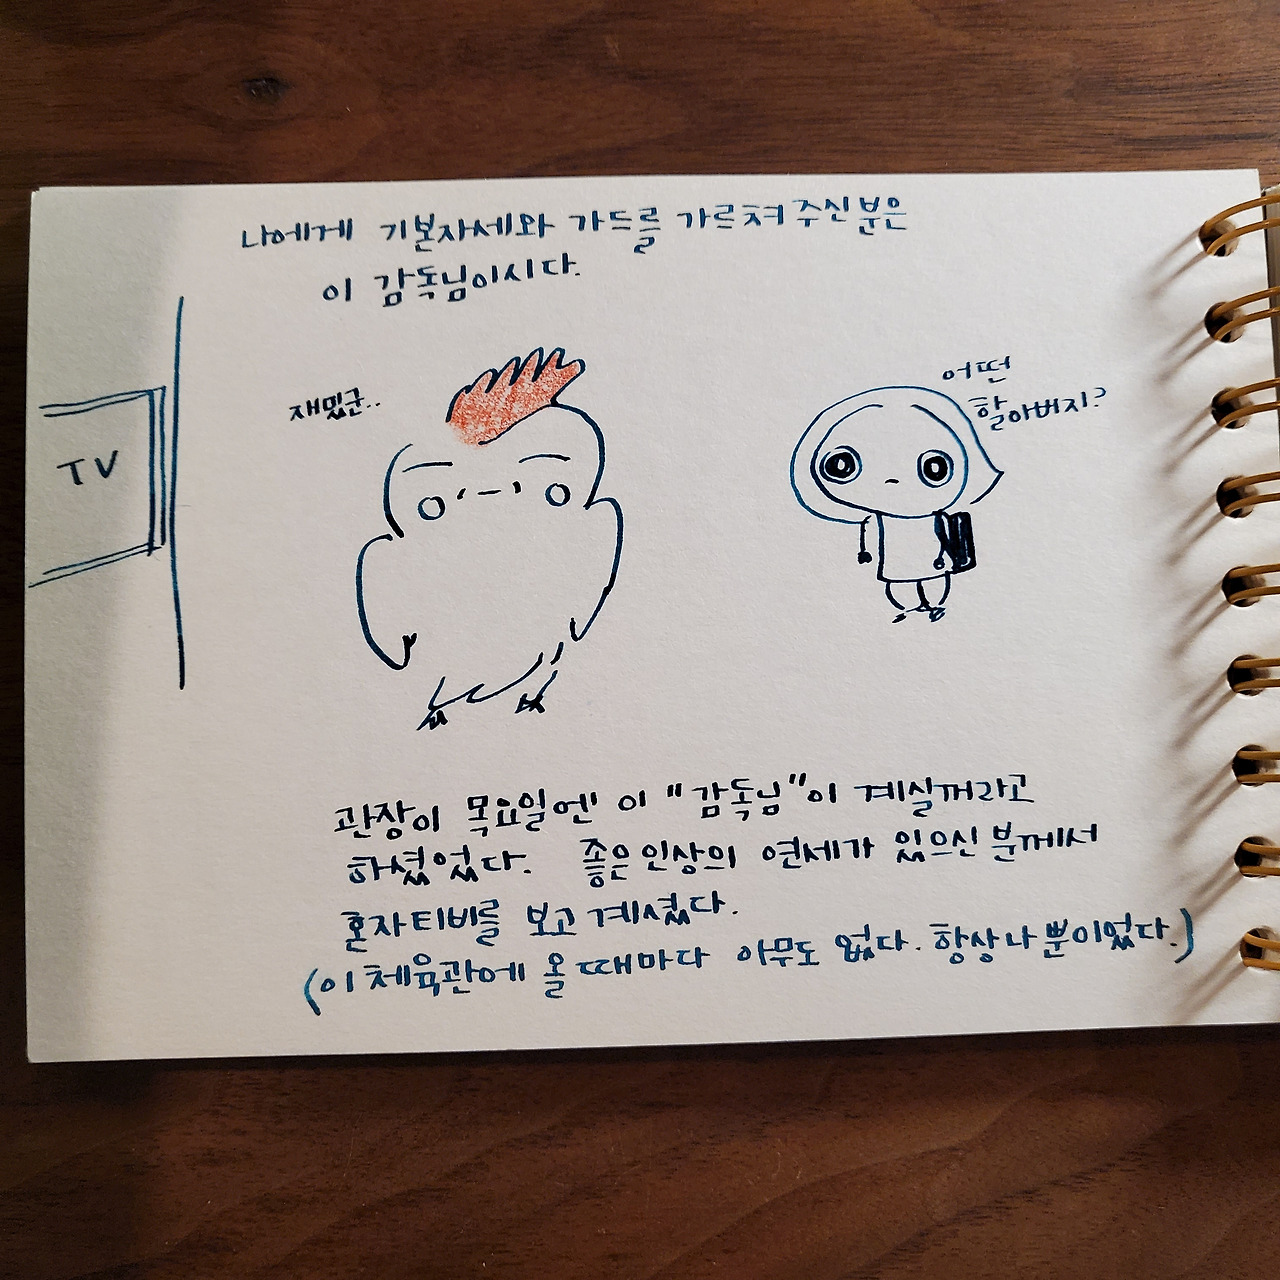 나에게 기본자세와 가드를 가르쳐 주신 분은
이 감독님이시다.
재밌군..
어떤
할아버지?
TV
관장이 목요일엔 이 "감독님"이 계실꺼라고
하셨었다. 좋은 인상의 연세가 있으신 분께서
혼자 티비를 보고 계셨다.
(이 체육관에 올 때마다 아무도 없다. 항상 나 뿐이었다.)